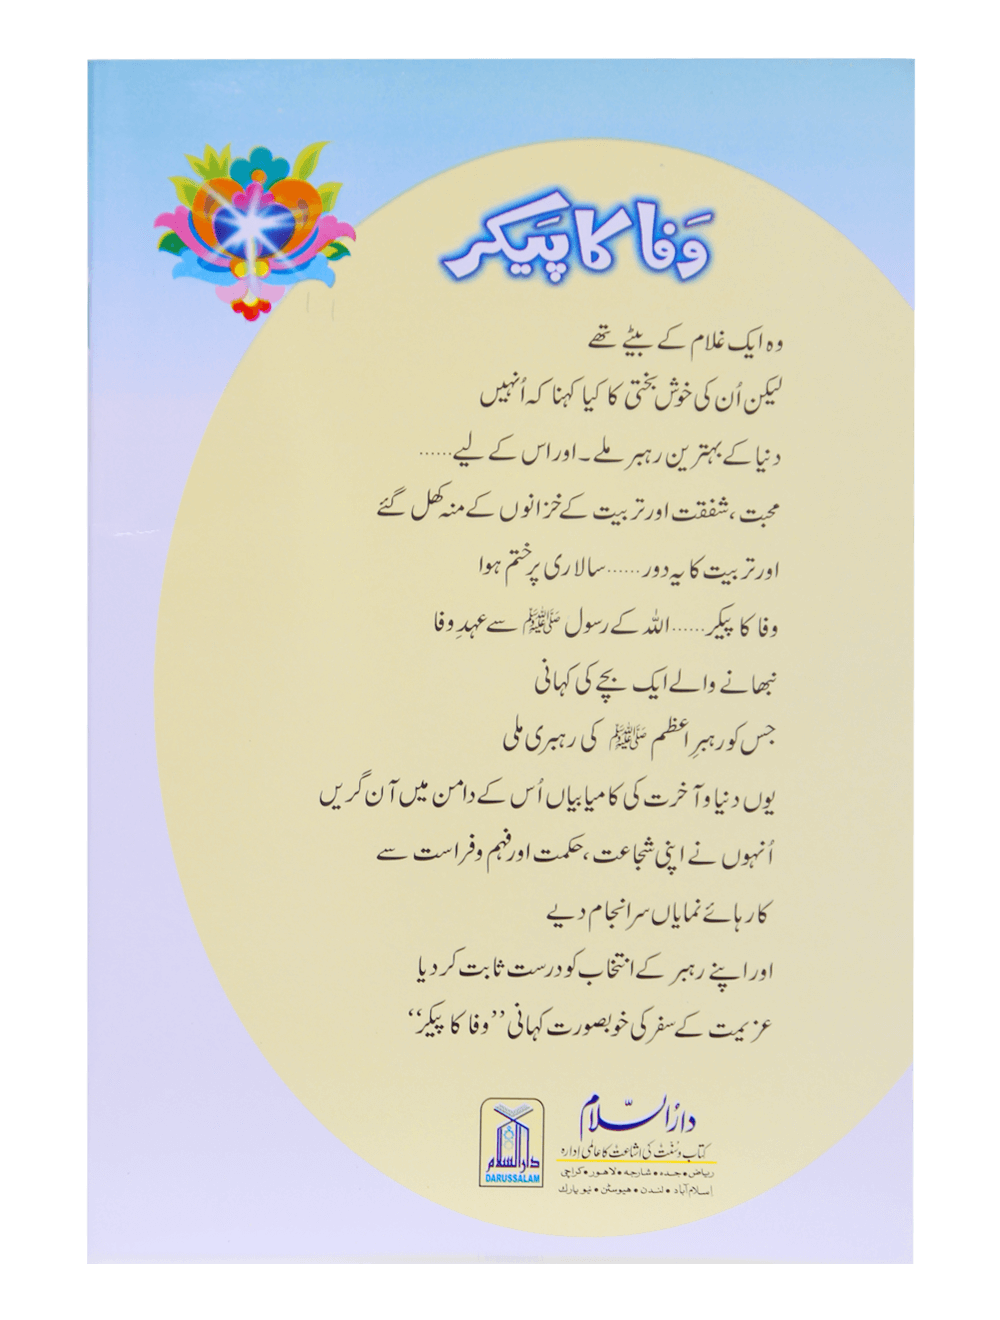 وَفا کا پَیکر
وہ ایک غلام کے بیٹے تھے
لیکن اُن کی خوش بختی کا کیا کہنا کہ اُنہیں
دنیا کے بہترین رہبر ملے۔ اور اس کے لیے......
محبت، شفقت اور تربیت کے خزانوں کے منہ کھل گئے
اور تربیت کا یہ دور......سالاری پر ختم ہوا
وفا کا پیکر......اللہ کے رسول ﷺ سے عہدِ وفا
نبھانے والے ایک بچے کی کہانی
جس کو رہبرِ اعظم ﷺ کی رہبری ملی
یوں دنیا و آخرت کی کامیابیاں اُس کے دامن میں آن گریں
اُنہوں نے اپنی شجاعت، حکمت اور فہم و فراست سے
کارہائے نمایاں سرانجام دیے
اور اپنے رہبر کے انتخاب کو درست ثابت کر دیا
عزیمت کے سفر کی خوبصورت کہانی ”وفا کا پیکر“
دارُالسّلام
کتاب و سُنّت کی اشاعت کا عالمی ادارہ
ریاض • جدہ • شارجہ • لاہور • کراچی
اسلام آباد • لندن • ھیوسٹن • نیو یارک
دارالسلام
DARUSSALAM